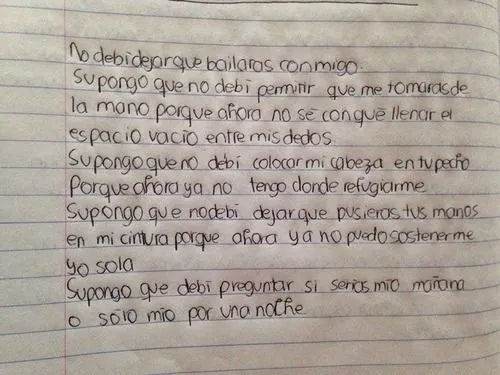 No debi dejar que bailaras conmigo.
Supongo que no debí permitir que me tomaras de
la mano porque ahora no sé con qué llenar el
espacio vacio entre mis dedos.
Supongo que no debí colocar mi cabeza en tu pecho
Porque ahora ya no tengo donde refugiarme
Supongo que no debí dejar que pusieras tus manos
en mi cintura porque ahora ya no puedo sostenerme
yo sola
Supongo que debí preguntar si serías mio mañana
o sólo mio por una noche.